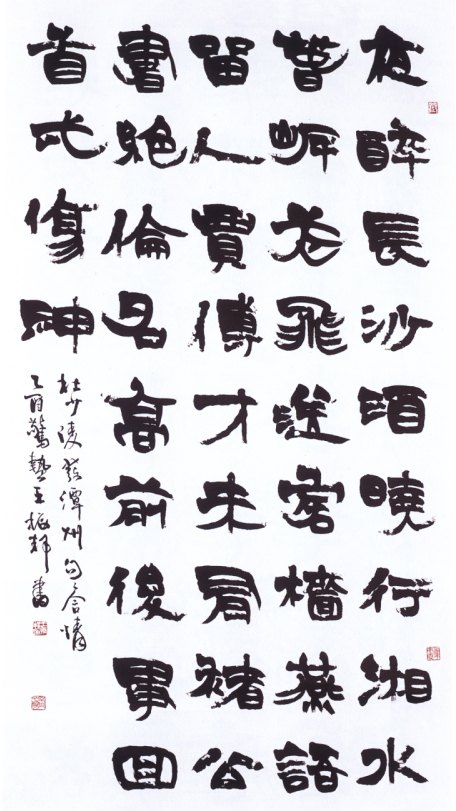 夜醉長沙酒曉行湘水
春岸花飛送客檣燕語
留人賈傅才未有褚公
書絕倫名高前後事回
首弌傷神
杜少陵發潭州句
乙酉驚蟄王振輝書